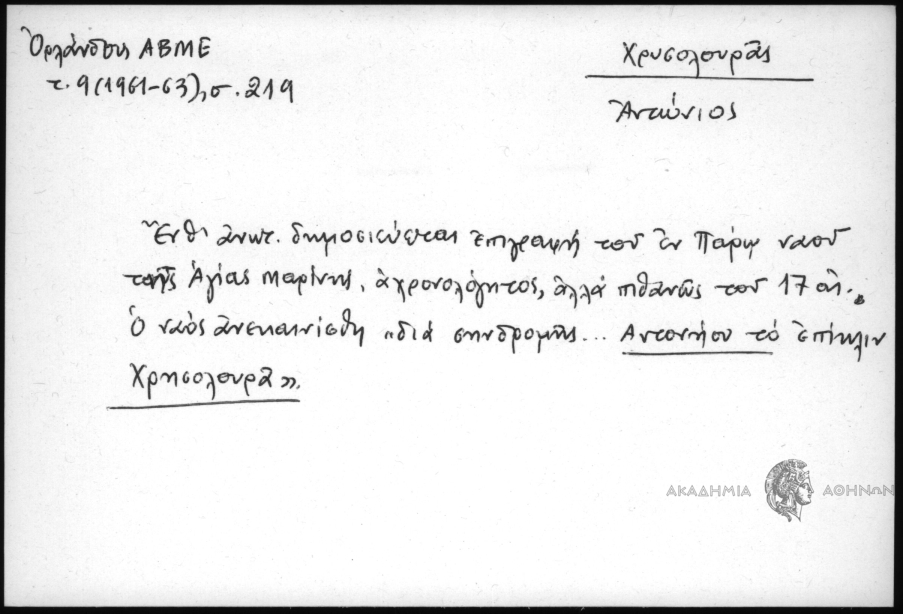 Ὀρλάνδος ΑΒΜΕ
τ. 9 (1961-63), σ. 219
Χρυσολουρᾶς
Ἀντώνιος
Ἔνθ' ἀνωτ. δημοσιεύεται ἐπιγραφή τοῦ ἐν Πάρῳ ναοῦ
τῆς Ἁγίας Μαρίνης, ἀχρονολόγητος, ἀλλά πιθανῶς τοῦ 17 αἰ.
Ὁ ναός ἀνεκαινίσθη "διά σηνδρομῆς... Αντονήου τό ἐπίκλιν
Χρησολουρᾶ".
ΑΚΑΔΗΜΙΑ ΑΘΗΝΩΝ